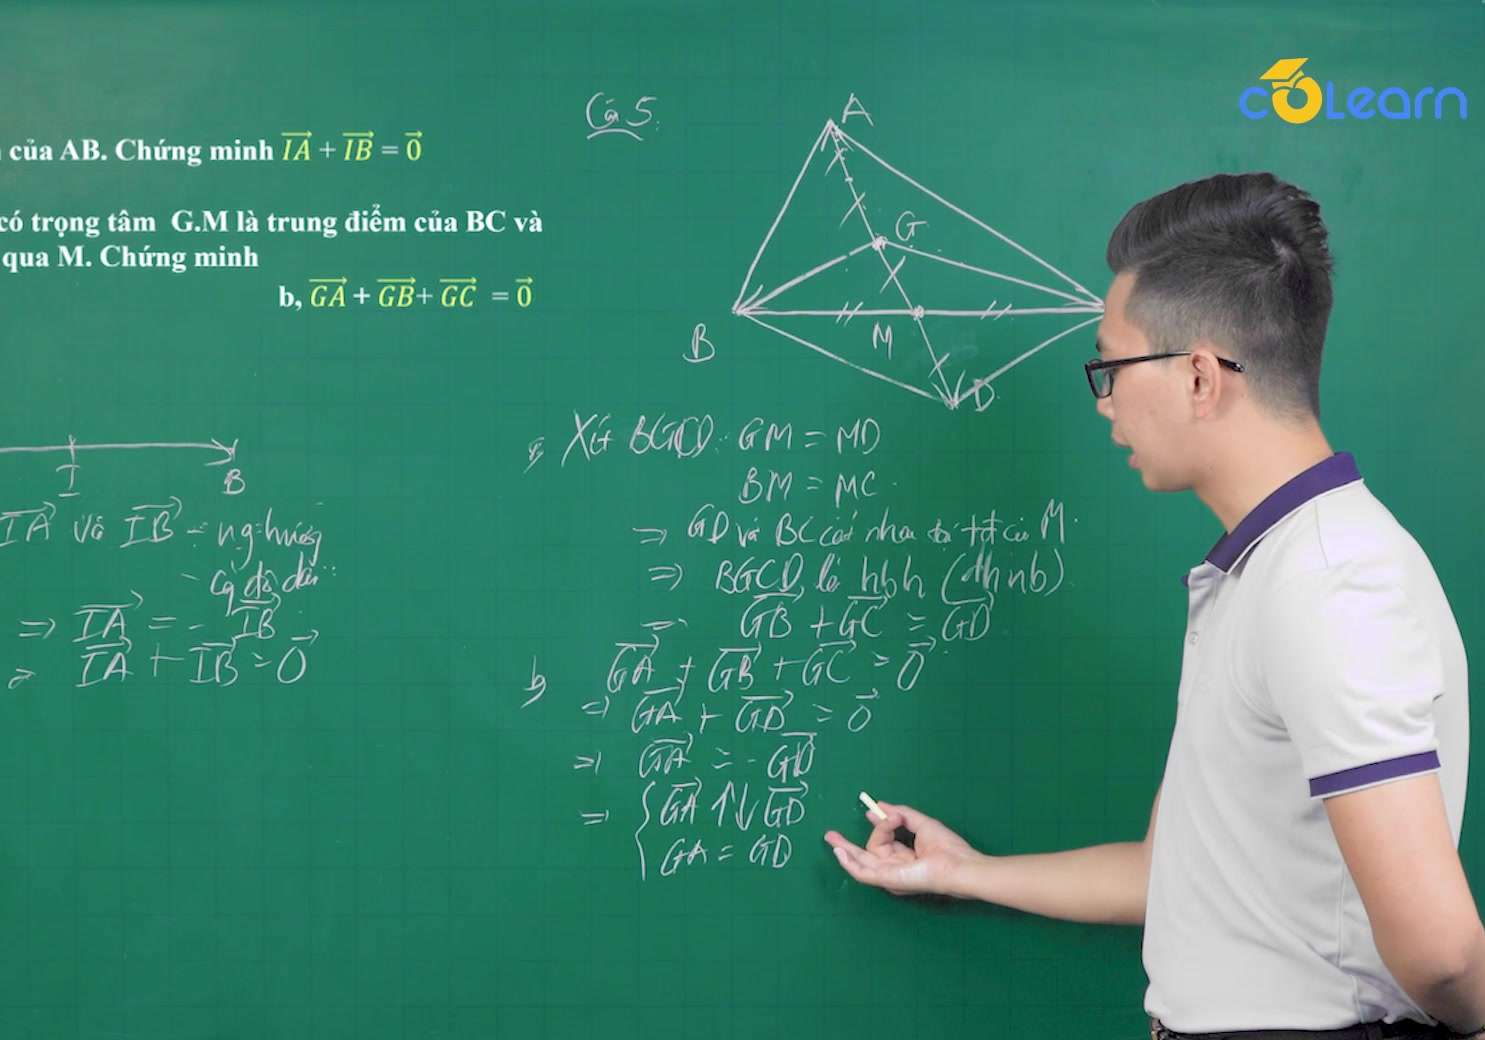 coLearn
của AB. Chứng minh IA + IB = 0
có trọng tâm G.M là trung điểm của BC và
qua M. Chứng minh
b, GA + GB + GC = 0
Câu 5:
A
G
B
M
D
I
B
IA và IB - ng hướng
- cg độ dài
=> IA = - IB
=> IA + IB = 0
a, XG BGCD: GM = MD
BM = MC
=> GD và BC cắt nhau tại M
=> BGCD là hbh (dhnb)
=> GB + GC = GD
b, GA + GB + GC = 0
=> GA + GD = 0
=> GA = - GD
=> { GA ↑↓ GD
GA = GD